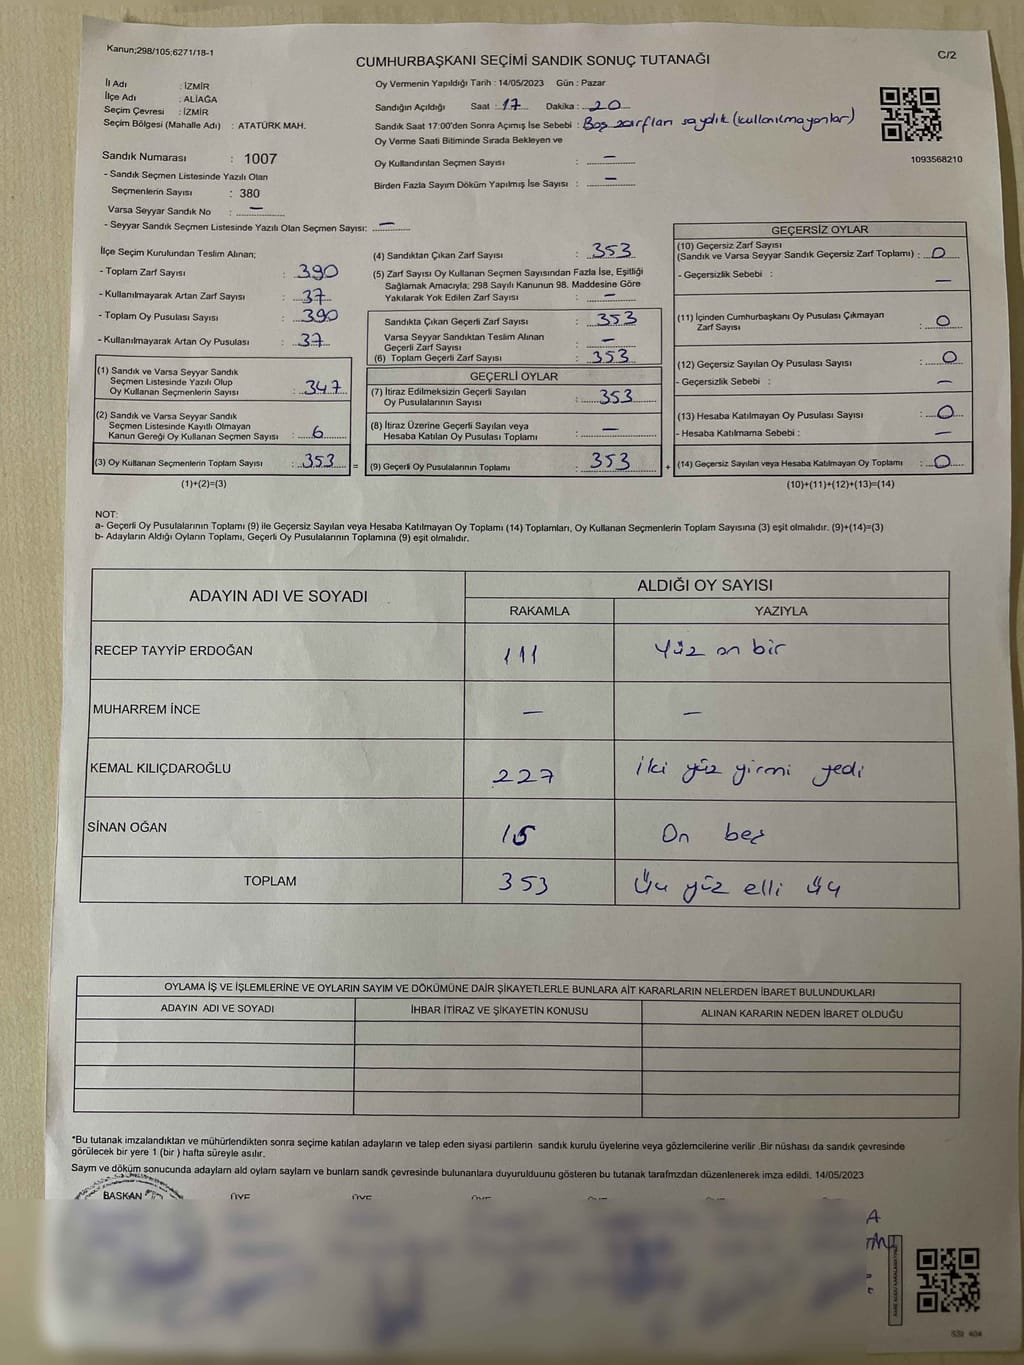 Kanun;298/105;6271/18-1
C/2
CUMHURBAŞKANI SEÇİMİ SANDIK SONUÇ TUTANAĞI
İl Adı : İZMİR
İlçe Adı : ALİAĞA
Seçim Çevresi : İZMİR
Seçim Bölgesi (Mahalle Adı) : ATATÜRK MAH.
Oy Vermenin Yapıldığı Tarih : 14/05/2023 Gün : Pazar
Sandığın Açıldığı Saat : 17 Dakika : 20
Sandık Saat 17:00'den Sonra Açımış İse Sebebi : Boş zarfları saydık (kullanılmayanlar)
Oy Verme Saati Bitiminde Sırada Bekleyen ve
Oy Kullandırılan Seçmen Sayısı : —
Birden Fazla Sayım Döküm Yapılmış İse Sayısı : —
1093568210
Sandık Numarası : 1007
- Sandık Seçmen Listesinde Yazılı Olan
Seçmenlerin Sayısı : 380
Varsa Seyyar Sandık No : —
- Seyyar Sandık Seçmen Listesinde Yazılı Olan Seçmen Sayısı: —
İlçe Seçim Kurulundan Teslim Alınan;
- Toplam Zarf Sayısı : 390
- Kullanılmayarak Artan Zarf Sayısı : 37
- Toplam Oy Pusulası Sayısı : 390
- Kullanılmayarak Artan Oy Pusulası : 37
(1) Sandık ve Varsa Seyyar Sandık
Seçmen Listesinde Yazılı Olup
Oy Kullanan Seçmenlerin Sayısı : 347
(2) Sandık ve Varsa Seyyar Sandık
Seçmen Listesinde Kayıtlı Olmayan
Kanun Gereği Oy Kullanan Seçmen Sayısı : 6
(3) Oy Kullanan Seçmenlerin Toplam Sayısı : 353 =
(1)+(2)=(3)
(4) Sandıktan Çıkan Zarf Sayısı : 353
(5) Zarf Sayısı Oy Kullanan Seçmen Sayısından Fazla İse, Eşitliği
Sağlamak Amacıyla; 298 Sayılı Kanunun 98. Maddesine Göre
Yakılarak Yok Edilen Zarf Sayısı : —
Sandıkta Çıkan Geçerli Zarf Sayısı : 353
Varsa Seyyar Sandıktan Teslim Alınan
Geçerli Zarf Sayısı : —
(6) Toplam Geçerli Zarf Sayısı : 353
GEÇERLİ OYLAR
(7) İtiraz Edilmeksizin Geçerli Sayılan
Oy Pusulalarının Sayısı : 353
(8) İtiraz Üzerine Geçerli Sayılan veya
Hesaba Katılan Oy Pusulası Toplamı : —
(9) Geçerli Oy Pusulalarının Toplamı : 353 +
GEÇERSİZ OYLAR
(10) Geçersiz Zarf Sayısı
(Sandık ve Varsa Seyyar Sandık Geçersiz Zarf Toplamı) : 0
- Geçersizlik Sebebi : —
(11) İçinden Cumhurbaşkanı Oy Pusulası Çıkmayan
Zarf Sayısı : 0
(12) Geçersiz Sayılan Oy Pusulası Sayısı : 0
- Geçersizlik Sebebi : —
(13) Hesaba Katılmayan Oy Pusulası Sayısı : 0
- Hesaba Katılmama Sebebi : —
(14) Geçersiz Sayılan veya Hesaba Katılmayan Oy Toplamı : 0
(10)+(11)+(12)+(13)=(14)
NOT:
a- Geçerli Oy Pusulalarının Toplamı (9) ile Geçersiz Sayılan veya Hesaba Katılmayan Oy Toplamı (14) Toplamları, Oy Kullanan Seçmenlerin Toplam Sayısına (3) eşit olmalıdır. (9)+(14)=(3)
b- Adayların Aldığı Oyların Toplamı, Geçerli Oy Pusulalarının Toplamına (9) eşit olmalıdır.
ADAYIN ADI VE SOYADI
ALDIĞI OY SAYISI
RAKAMLA YAZIYLA
RECEP TAYYİP ERDOĞAN 111 Yüz on bir
MUHARREM İNCE — —
KEMAL KILIÇDAROĞLU 227 İki yüz yirmi yedi
SİNAN OĞAN 15 On beş
TOPLAM 353 Üç yüz elli üç
OYLAMA İŞ VE İŞLEMLERİNE VE OYLARIN SAYIM VE DÖKÜMÜNE DAİR ŞİKAYETLERLE BUNLARA AİT KARARLARIN NELERDEN İBARET BULUNDUKLARI
ADAYIN ADI VE SOYADI İHBAR İTİRAZ VE ŞİKAYETİN KONUSU ALINAN KARARIN NEDEN İBARET OLDUĞU
*Bu tutanak imzalandıktan ve mühürlendikten sonra seçime katılan adayların ve talep eden siyasi partilerin sandık kurulu üyelerine veya gözlemcilerine verilir .Bir nüshası da sandık çevresinde
görülecek bir yere 1 (bir ) hafta süreyle asılır.
Saym ve döküm sonucunda adaylarn ald oylarn saylarn ve bunlarn sandk çevresinde bulunanlara duyurulduunu gösteren bu tutanak tarafmzdan düzenlenerek imza edildi. 14/05/2023
BAŞKAN ÜYE ÜYE ÜYE